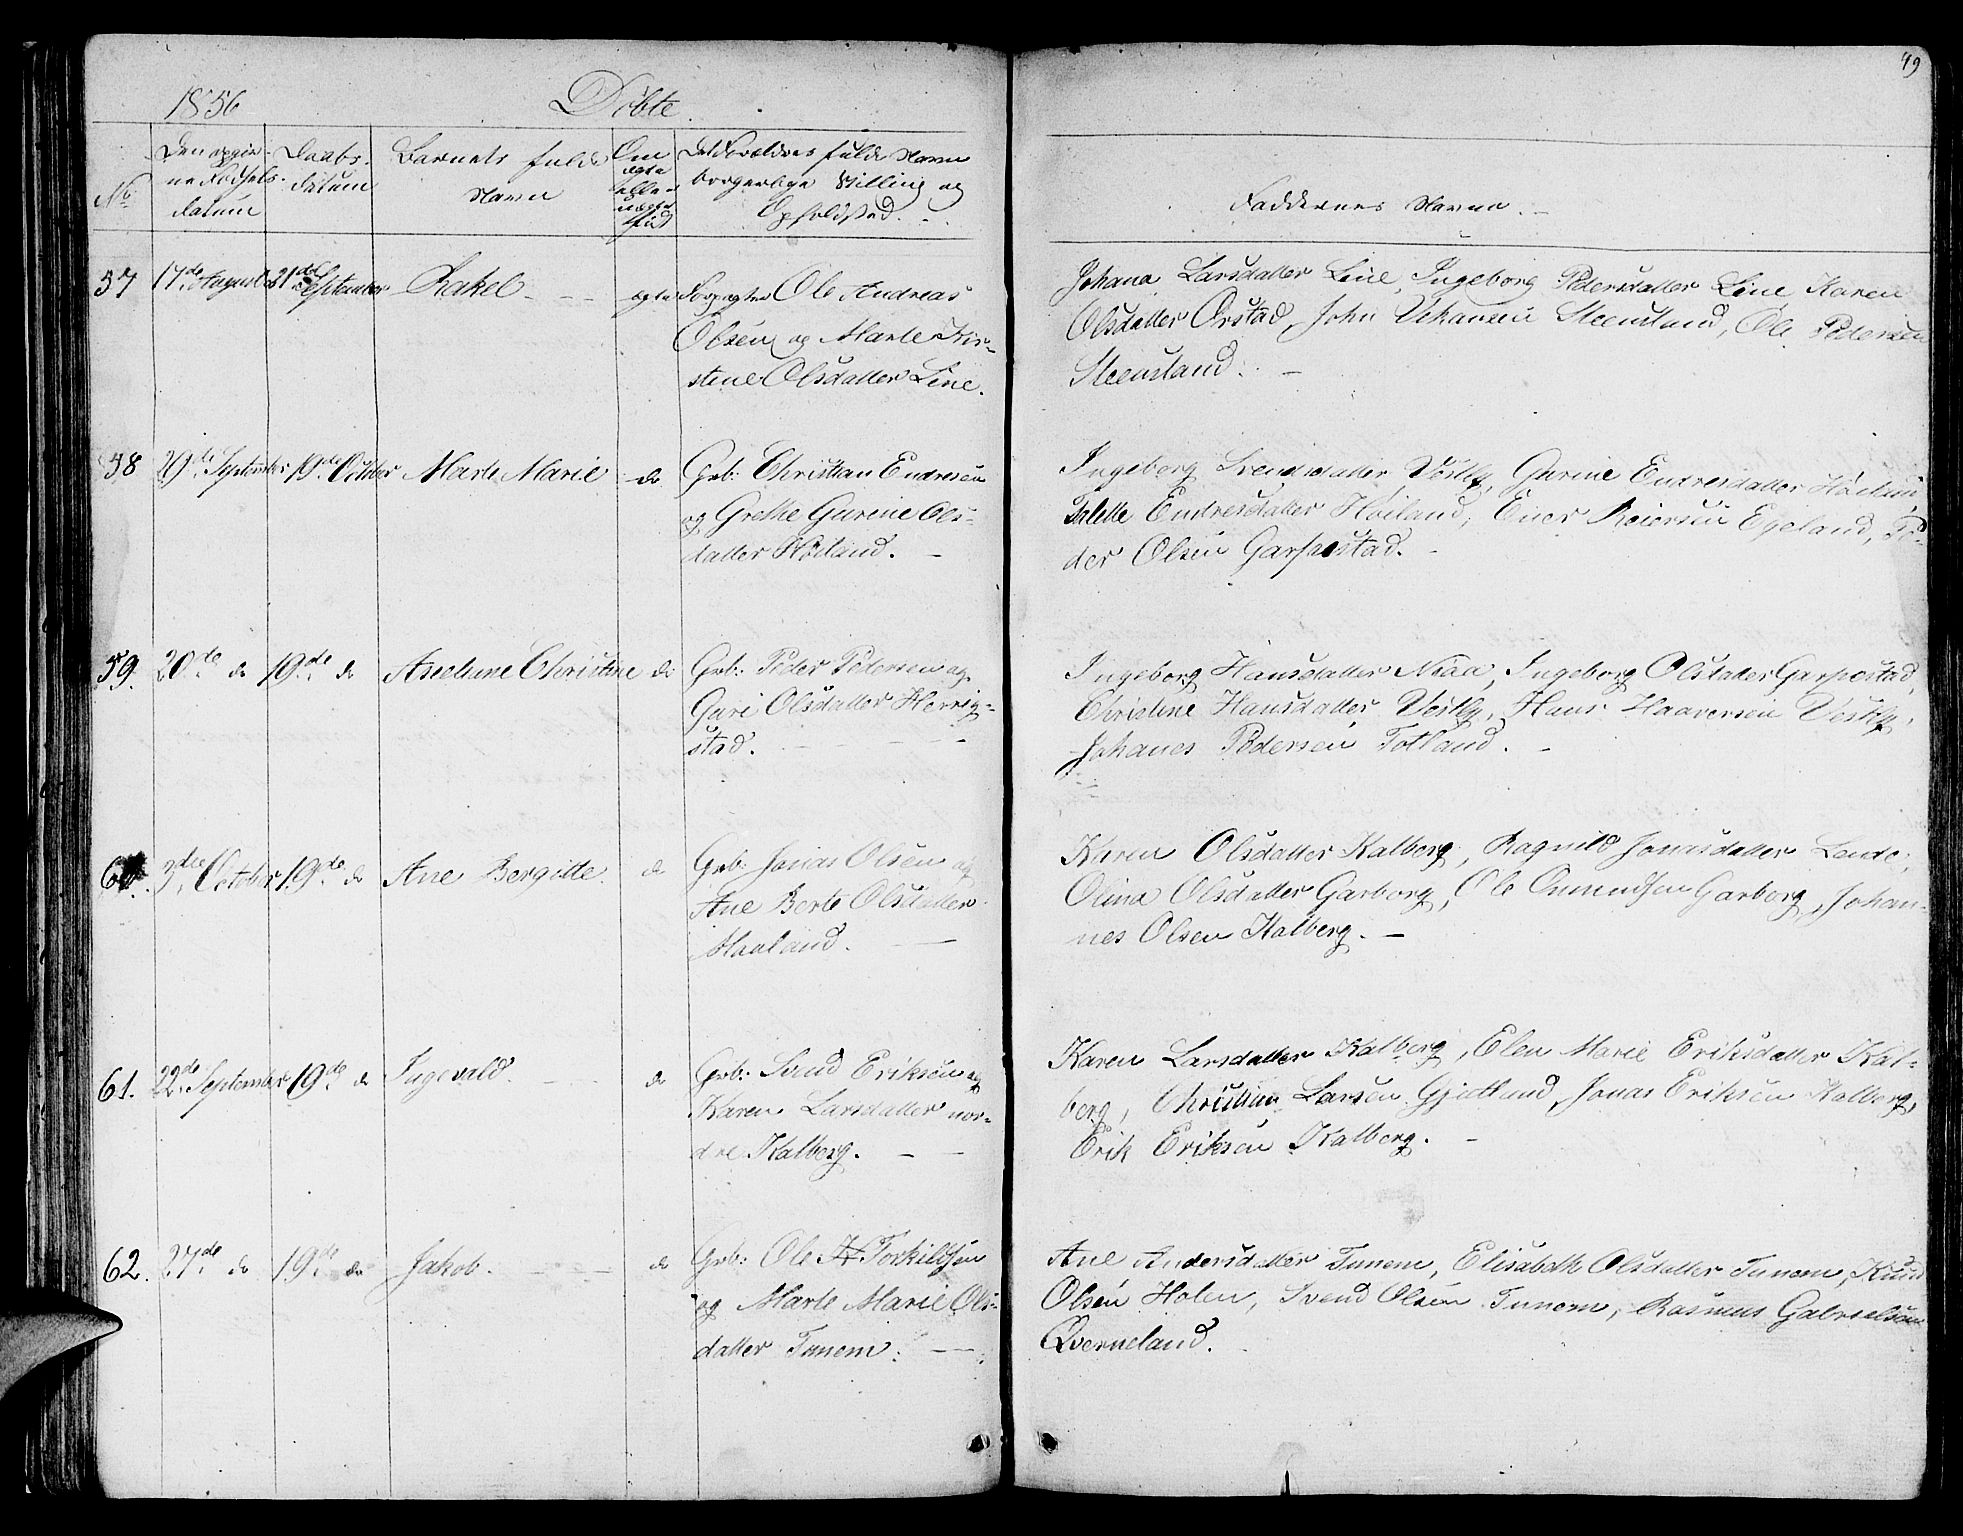 49
1856
Döbte.
No
Den opgiv-
ne Födsels-
datum
Daabs-
datum
Barnets fulde
Navn
Om
ægte
eller
uægte
född
Forældres fulde Navn
borgerlige Stilling og
Opholdsted.
Faddernes Navne.
57 17de August 21de September Rakel ægte Forpagter Ole Andreas
Olsen og Marte Kir-
stine Olsdatter Line.
Johana Larsdatter Line, Ingeborg Pedersdatter Line, Karen
Olsdatter Orstad, John Steensland, Ole Pedersen
Steensland.
58 29de September 19de October Marte Marie do Grb: Christian Endresen
og Grethe Gurine Ols-
datter Höiland.
Ingeborg Svendsdatter Vestly, Gurine Endresdatter Höiland,
Talette Endresdatter Höiland, Einer Reiersen Egeland, Pe-
der Olsen Garpestad.
59. 20de do 19de do Aseline Christine do Grb: Peder Pedersen og
Guri Olsdatter Herrig-
stad.
Ingeborg Hansdatter Niaa, Ingeborg Olsdatter Garpestad,
Christine Hansdatter Vestly, Hans Haaversen Vestly,
Johanes Pedersen Totland.
60. 3die October 19de do Ane Bergitte. do Grb: Jonas Olsen og
Ane Berte Olsdatter
Haaland.
Karen Olsdatter Kalberg, Ragnild Jonasdatter Lende,
Olina Olsdatter Garborg, Ole Omundsen Garborg, Johan-
nes Olsen Kalberg.
61. 22de September 19de do Ingevald. do Grb: Svend Eriksen og
Karen Larsdatter nor-
dre Kalberg.
Karen Larsdatter Kalberg, Elen Marie Eriksdatter Kal-
berg, Christian Larsen Gjetland, Jonas Eriksen Kalberg,
Erik Eriksen Kalberg.
62. 27de do 19de do Jakob. do Grb: Ole Torkildsen
og Marte Marie Ols-
datter Tunem.
Ane Andersdatter Tunem, Elisabeth Olsdatter Tunem, Knud
Olsen Holen, Svend Olsen Tunem, Rasmus Gabrielsen
Qverneland.